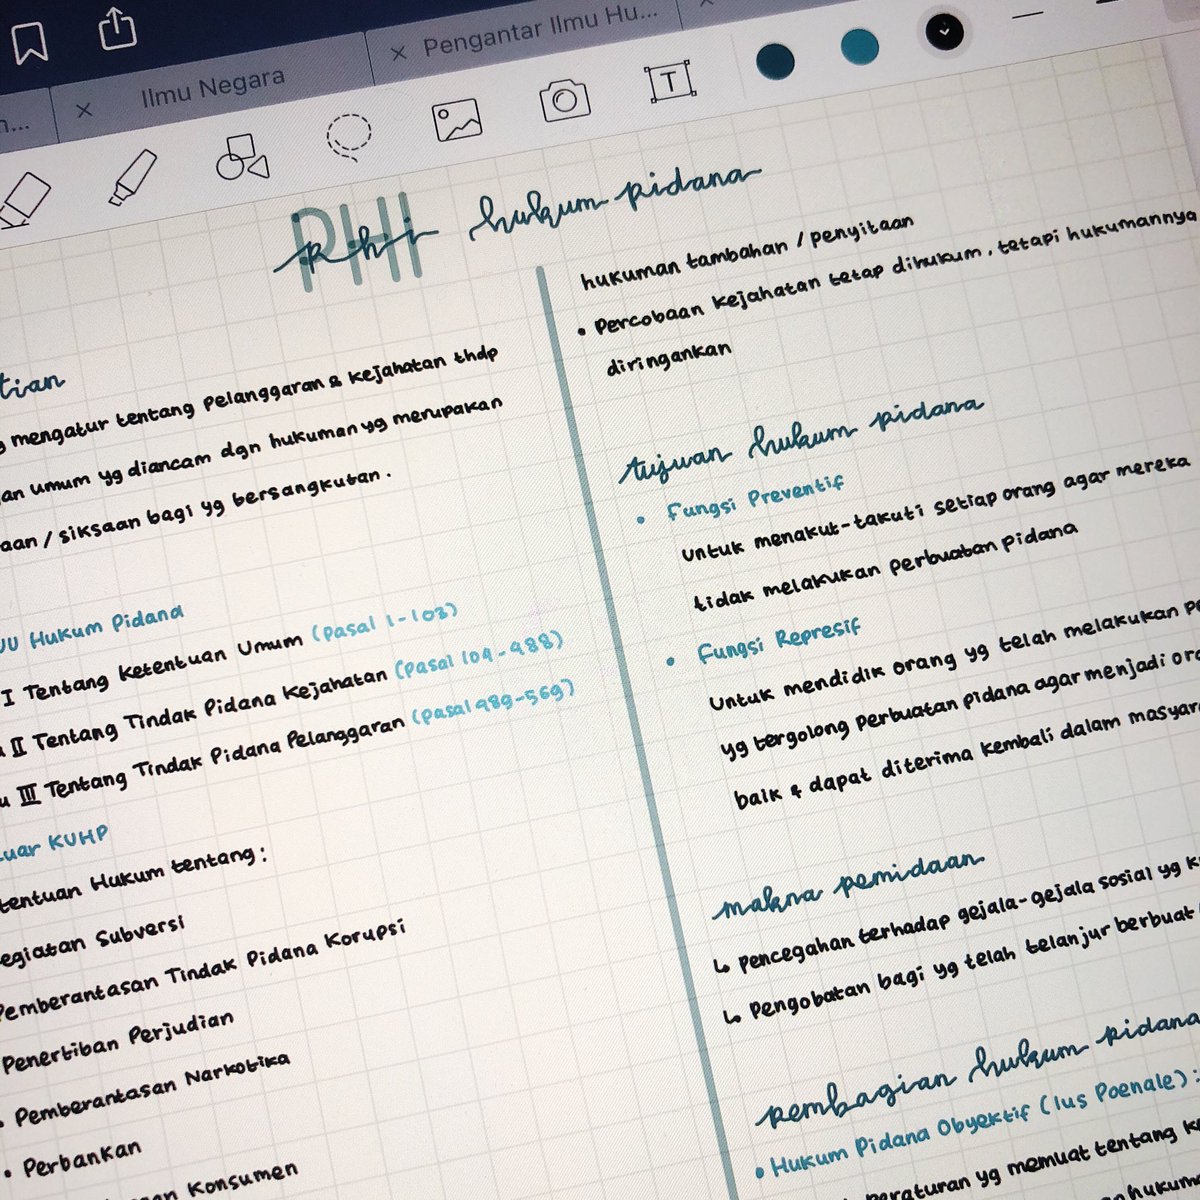 Ilmu Negara
Pengantar Ilmu Hu...
T
PHI
phi hukum pidana
tian
mengatur tentang pelanggaran & kejahatan thdp
an umum yg diancam dgn hukuman yg merupakan
aan / siksaan bagi yg bersangkutan.
UU Hukum Pidana
I Tentang Ketentuan Umum (pasal 1-103)
II Tentang Tindak Pidana Kejahatan (pasal 104-488)
u III Tentang Tindak Pidana Pelanggaran (pasal 489-569)
luar KUHP
tentuan Hukum tentang:
egiatan Subversi
Pemberantasan Tindak Pidana Korupsi
Penertiban Perjudian
• Pemberantasan Narkotika
• Perbankan
Konsumen
hukuman tambahan / penyitaan
• Percobaan kejahatan tetap dihukum, tetapi hukumannya
diringankan
tujuan hukum pidana
• Fungsi Preventif
untuk menakut-takuti setiap orang agar mereka
tidak melakukan perbuatan pidana
• Fungsi Represif
Untuk mendidik orang yg telah melakukan pe
yg tergolong perbuatan pidana agar menjadi ora
baik & dapat diterima kembali dalam masyar
makna pemidaan
↳ pencegahan terhadap gejala-gejala sosial yg k
↳ Pengobatan bagi yg telah telanjur berbuat
pembagian hukum pidana
• Hukum Pidana Obyektif (Ius Poenale):
peraturan yg memuat tentang ke
hukum